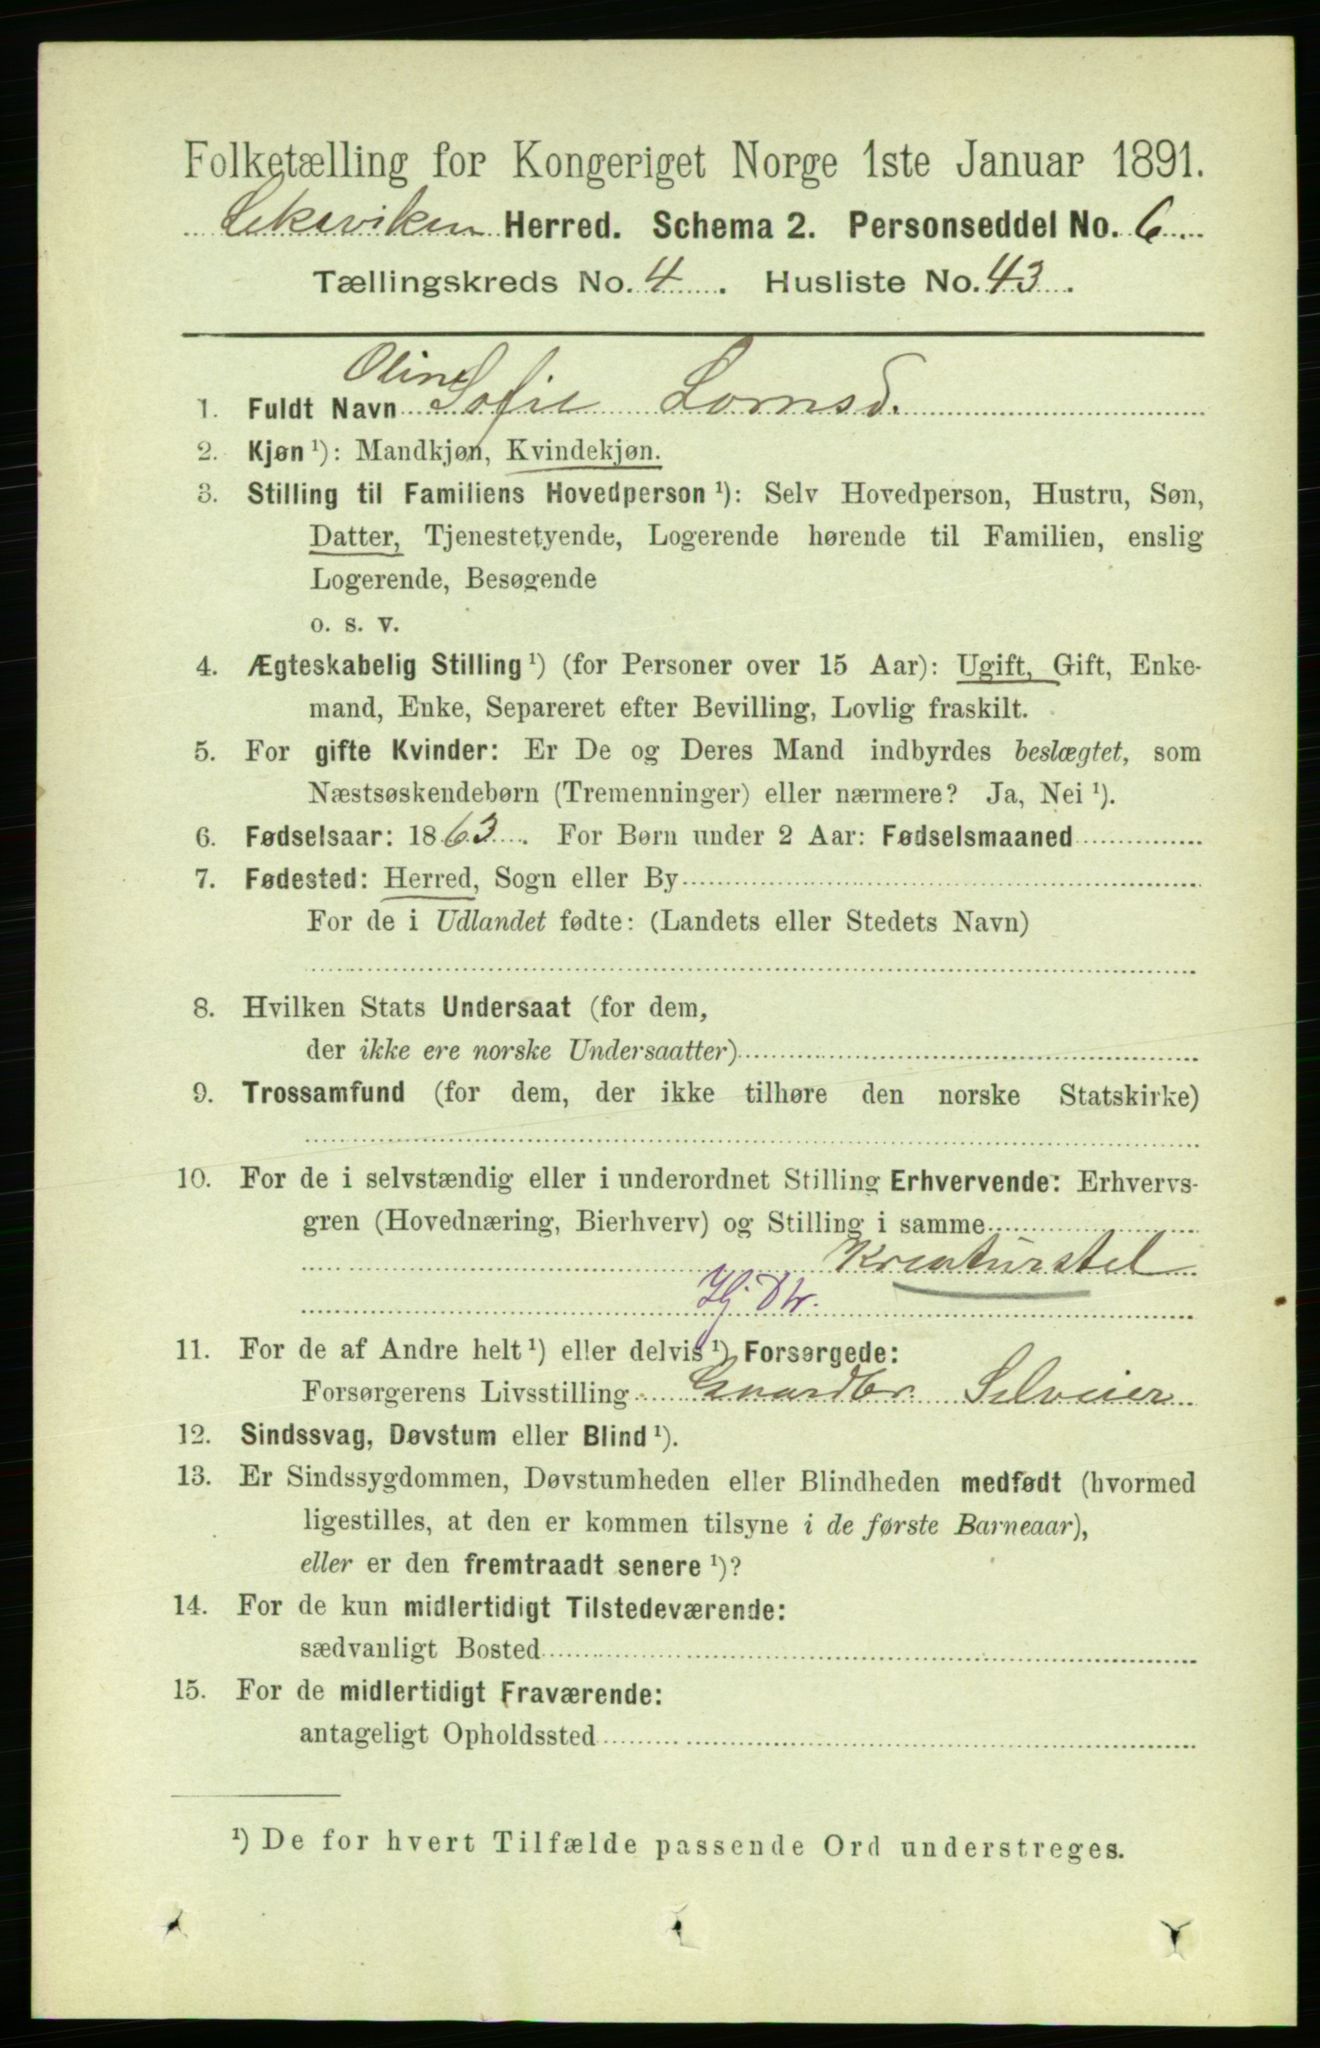 Folketælling for Kongeriget Norge 1ste Januar 1891.
Leksviken Herred. Schema 2. Personseddel No. 6
Tællingskreds No. 4. Husliste No. 43.
Oline
1. Fuldt Navn Sofie Lornsd.
2. Kjøn ¹): Mandkjøn, Kvindekjøn.
3. Stilling til Familiens Hovedperson ¹): Selv Hovedperson, Hustru, Søn,
Datter, Tjenestetyende, Logerende hørende til Familien, enslig
Logerende, Besøgende
o. s. v.
4. Ægteskabelig Stilling ¹) (for Personer over 15 Aar): Ugift, Gift, Enke-
mand, Enke, Separeret efter Bevilling, Lovlig fraskilt.
5. For gifte Kvinder: Er De og Deres Mand indbyrdes beslægtet, som
Næstsøskendebørn (Tremenninger) eller nærmere? Ja, Nei ¹).
6. Fødselsaar: 1863. For Børn under 2 Aar: Fødselsmaaned
7. Fødested: Herred, Sogn eller By
For de i Udlandet fødte: (Landets eller Stedets Navn)
8. Hvilken Stats Undersaat (for dem,
der ikke ere norske Undersaatter)
9. Trossamfund (for dem, der ikke tilhøre den norske Statskirke)
10. For de i selvstændig eller i underordnet Stilling Erhvervende: Erhvervs-
gren (Hovednæring, Bierhverv) og Stilling i samme
Kreaturstel
Hj Dtr.
11. For de af Andre helt ¹) eller delvis ¹) Forsørgede:
Forsørgerens Livsstilling Gaardbr. Selveier
12. Sindssvag, Døvstum eller Blind ¹).
13. Er Sindssygdommen, Døvstumheden eller Blindheden medfødt (hvormed
ligestilles, at den er kommen tilsyne i de første Barneaar),
eller er den fremtraadt senere ¹)?
14. For de kun midlertidigt Tilstedeværende:
sædvanligt Bosted
15. For de midlertidigt Fraværende:
antageligt Opholdssted
¹) De for hvert Tilfælde passende Ord understreges.